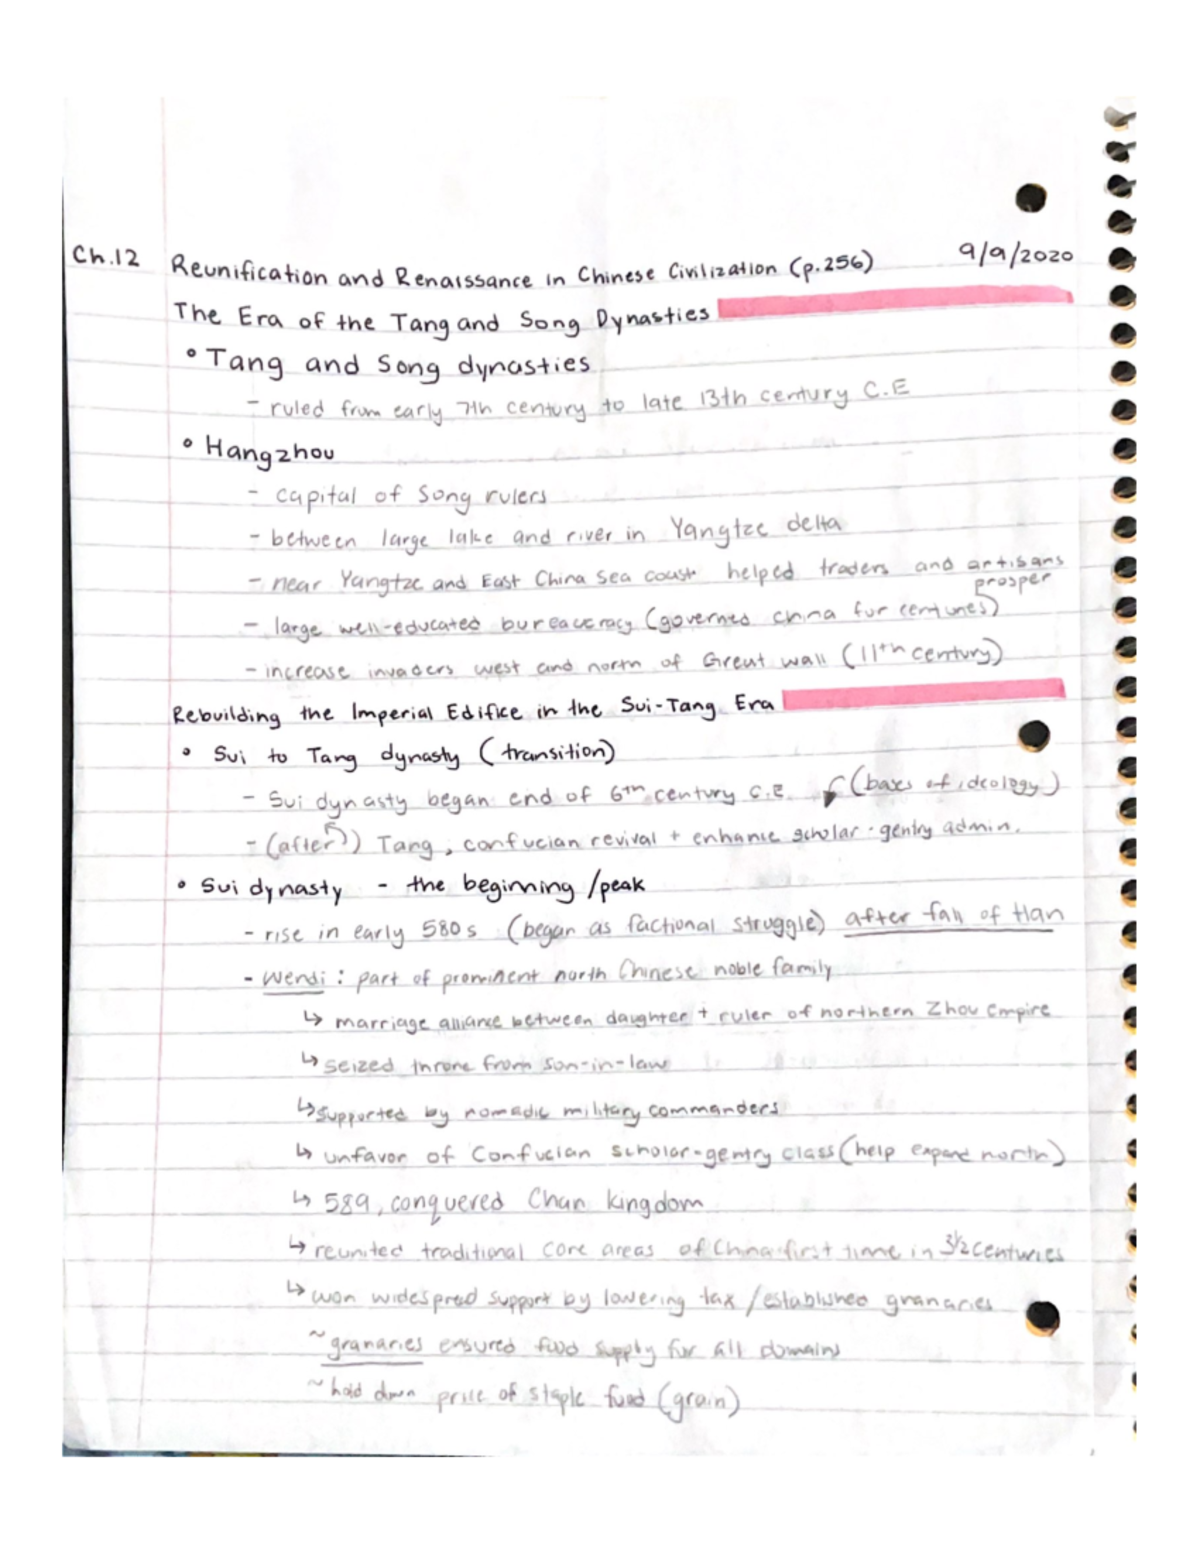 Ch.12 Reunification and Renaissance in Chinese Civilization (p.256) 9/9/2020
The Era of the Tang and Song Dynasties
• Tang and Song dynasties
- ruled from early 7th century to late 13th century C.E
• Hangzhou
- capital of Song rulers
- between large lake and river in Yangtze delta
- near Yangtze and East China Sea coast helped traders and artisans prosper
- large well-educated bureaucracy (governed china for centuries)
- increase invaders west and north of Great wall (11th century)
Rebuilding the Imperial Edifice in the Sui-Tang Era
• Sui to Tang dynasty (transition)
- Sui dynasty began end of 6th century C.E. (bases of ideology)
- (after) Tang, confucian revival + enhance scholar-gentry admin.
• Sui dynasty - the beginning/peak
- rise in early 580s (began as factional struggle) after fall of Han
- Wendi: part of prominent north Chinese noble family
↳ marriage alliance between daughter + ruler of northern Zhou Empire
↳ seized throne from son-in-law
↳ supported by nomadic military commanders
↳ unfavor of Confucian scholar-gentry class (help expand north)
↳ 589, conquered Chan kingdom
↳ reunited traditional core areas of China first time in 3½ centuries
↳ won widespread support by lowering tax/established granaries
~ granaries ensured food supply for all domains
~ hold down price of staple food (grain)